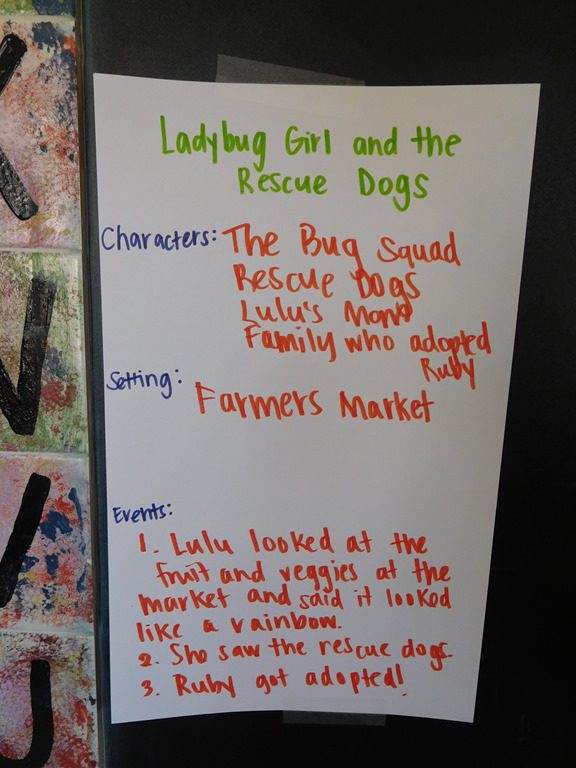 Ladybug Girl and the
Rescue Dogs
Characters: The Bug Squad
Rescue Dogs
Lulu's Mom
Family who adopted
Ruby
Setting:
Farmers Market
Events:
1. Lulu looked at the
fruit and veggies at the
market and said it looked
like a rainbow.
2. She saw the rescue dogs.
3. Ruby got adopted!